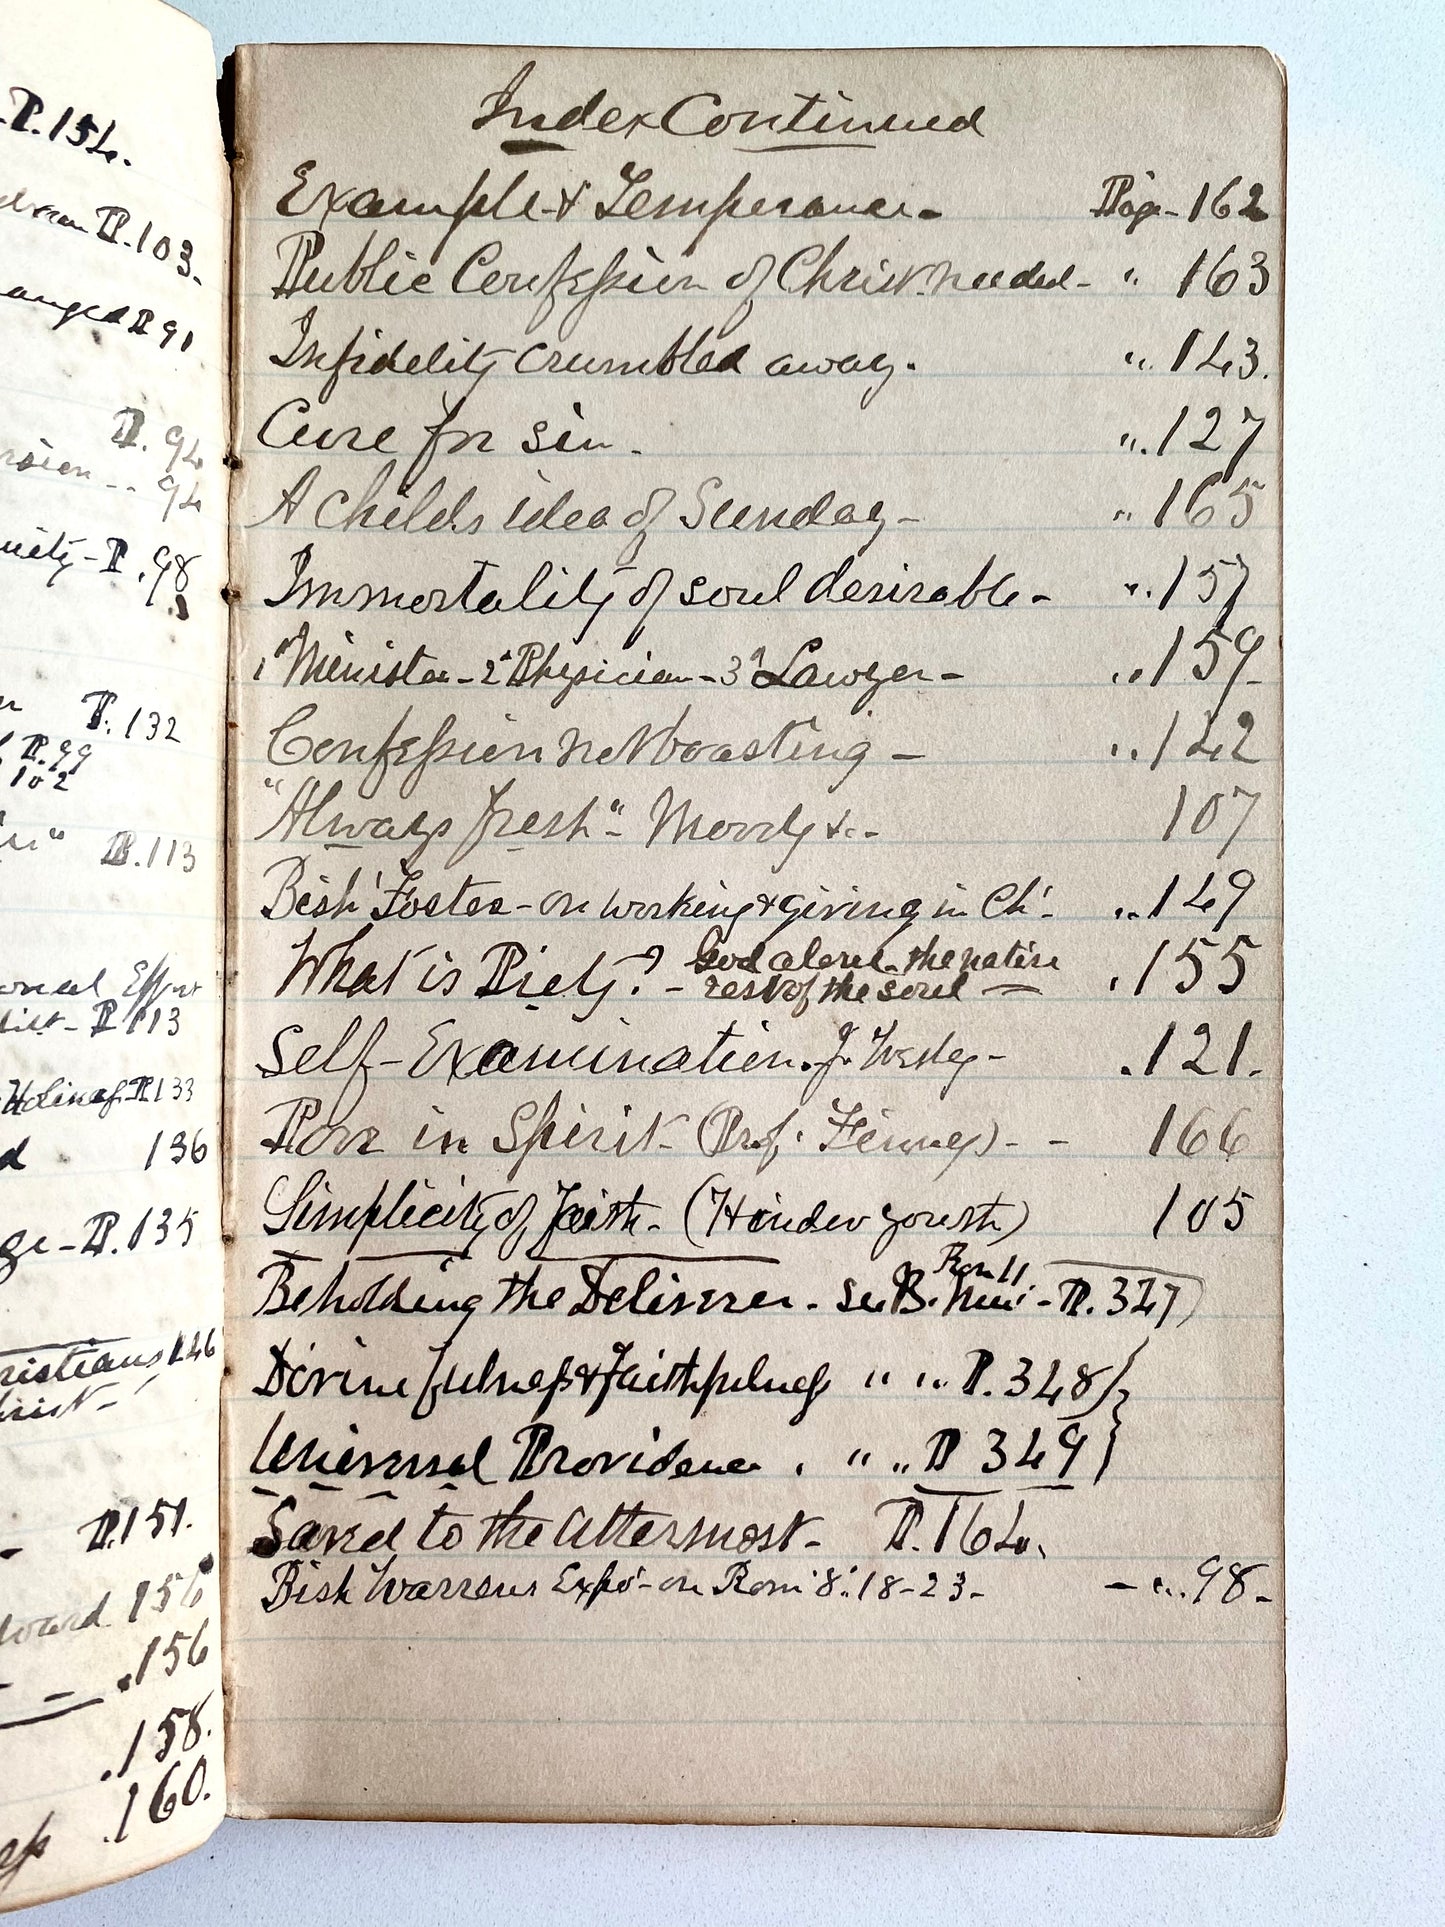 P. 154.
P. 103.
anged P 91
P. 94
rsion -- 94
nity - P. 98
P. 132
P. 99
102
P. 113
onal Effort
P 113
Holiness P 133
d 136
ge - P. 135
ristians 146
hrist -
P. 151.
ward 156
. 156
. 158.
. 160.
Index Continued
Example & Temperance - Page - 162
Public Confession of Christ needed - " 163
Infidelity crumbled away. " 143.
Cure for sin. " 127
A Childs idea of Sunday - " 165
Immortality of soul desirable - " 157
1st Minister - 2d Physician - 3d Lawyer - " 159
Confession not boasting - " 142
"Always fresh" - Moody &c - 107
Bish' Foster - on working & giving in Ch'. " 149
What is Piety? - God alone - the native
rest of the soul - . 155
Self-Examination. J. Wesley - . 121.
Poor in Spirit - (Prof. Finney) - - 166
Simplicity of Faith - (Hindoo youth) 105
Rom 11
Beholding the Deliverer - See B. - P. 347)
Divine fulness & Faithfulness " " P. 348)
Universal Providence . " " P 349}
Saved to the uttermost - P. 164.
Bish Warrens Expo' - on Rom' 8: 18-23 - - " 98 -